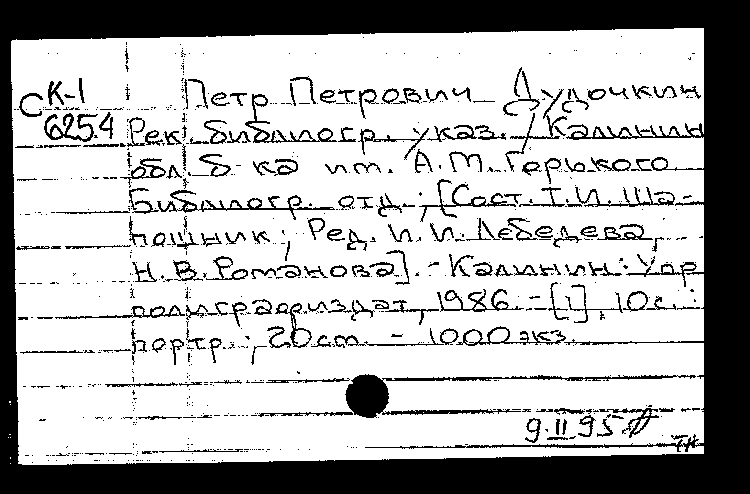 СК-1 Петр Петрович Дудочкин
6254 Рек. библиогр. указ. / Калинин
обл. б-ка им. А.М. Горького
Библиогр. отд.; [Сост. Т.И. Ша-
пошник; Ред. И.И. Лебедева,
Н.В. Романова]. - Калинин: Упр
полиграфиздат, 1986. - [1], 10с.:
портр.; 20см. - 1000 экз.
9.II 95
ТН